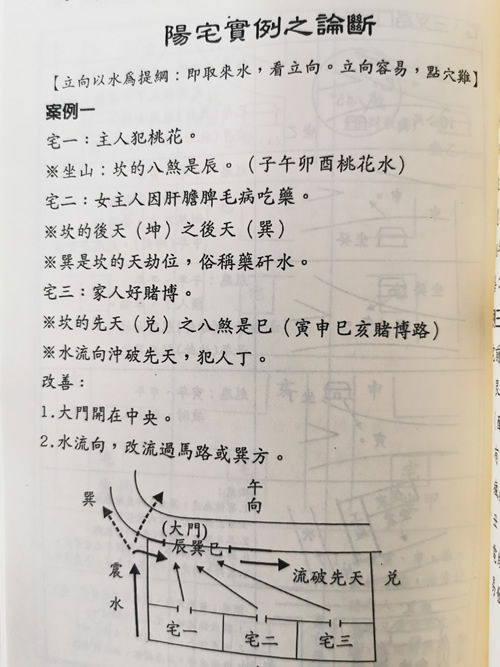 陽宅實例之論斷
【立向以水爲提綱：即取來水，看立向。立向容易，點穴難】
案例一
宅一：主人犯桃花。
※坐山：坎的八煞是辰。（子午卯酉桃花水）
宅二：女主人因肝膽脾毛病吃藥。
※坎的後天（坤）之後天（巽）
※巽是坎的天劫位，俗稱藥矸水。
宅三：家人好賭博。
※坎的先天（兌）之八煞是巳（寅申巳亥賭博路）
※水流向沖破先天，犯人丁。
改善：
1.大門開在中央。
2.水流向，改流過馬路或巽方。
午向
巽
(大門)
辰巽巳
震
水
流破先天
兌
宅一
宅二
宅三